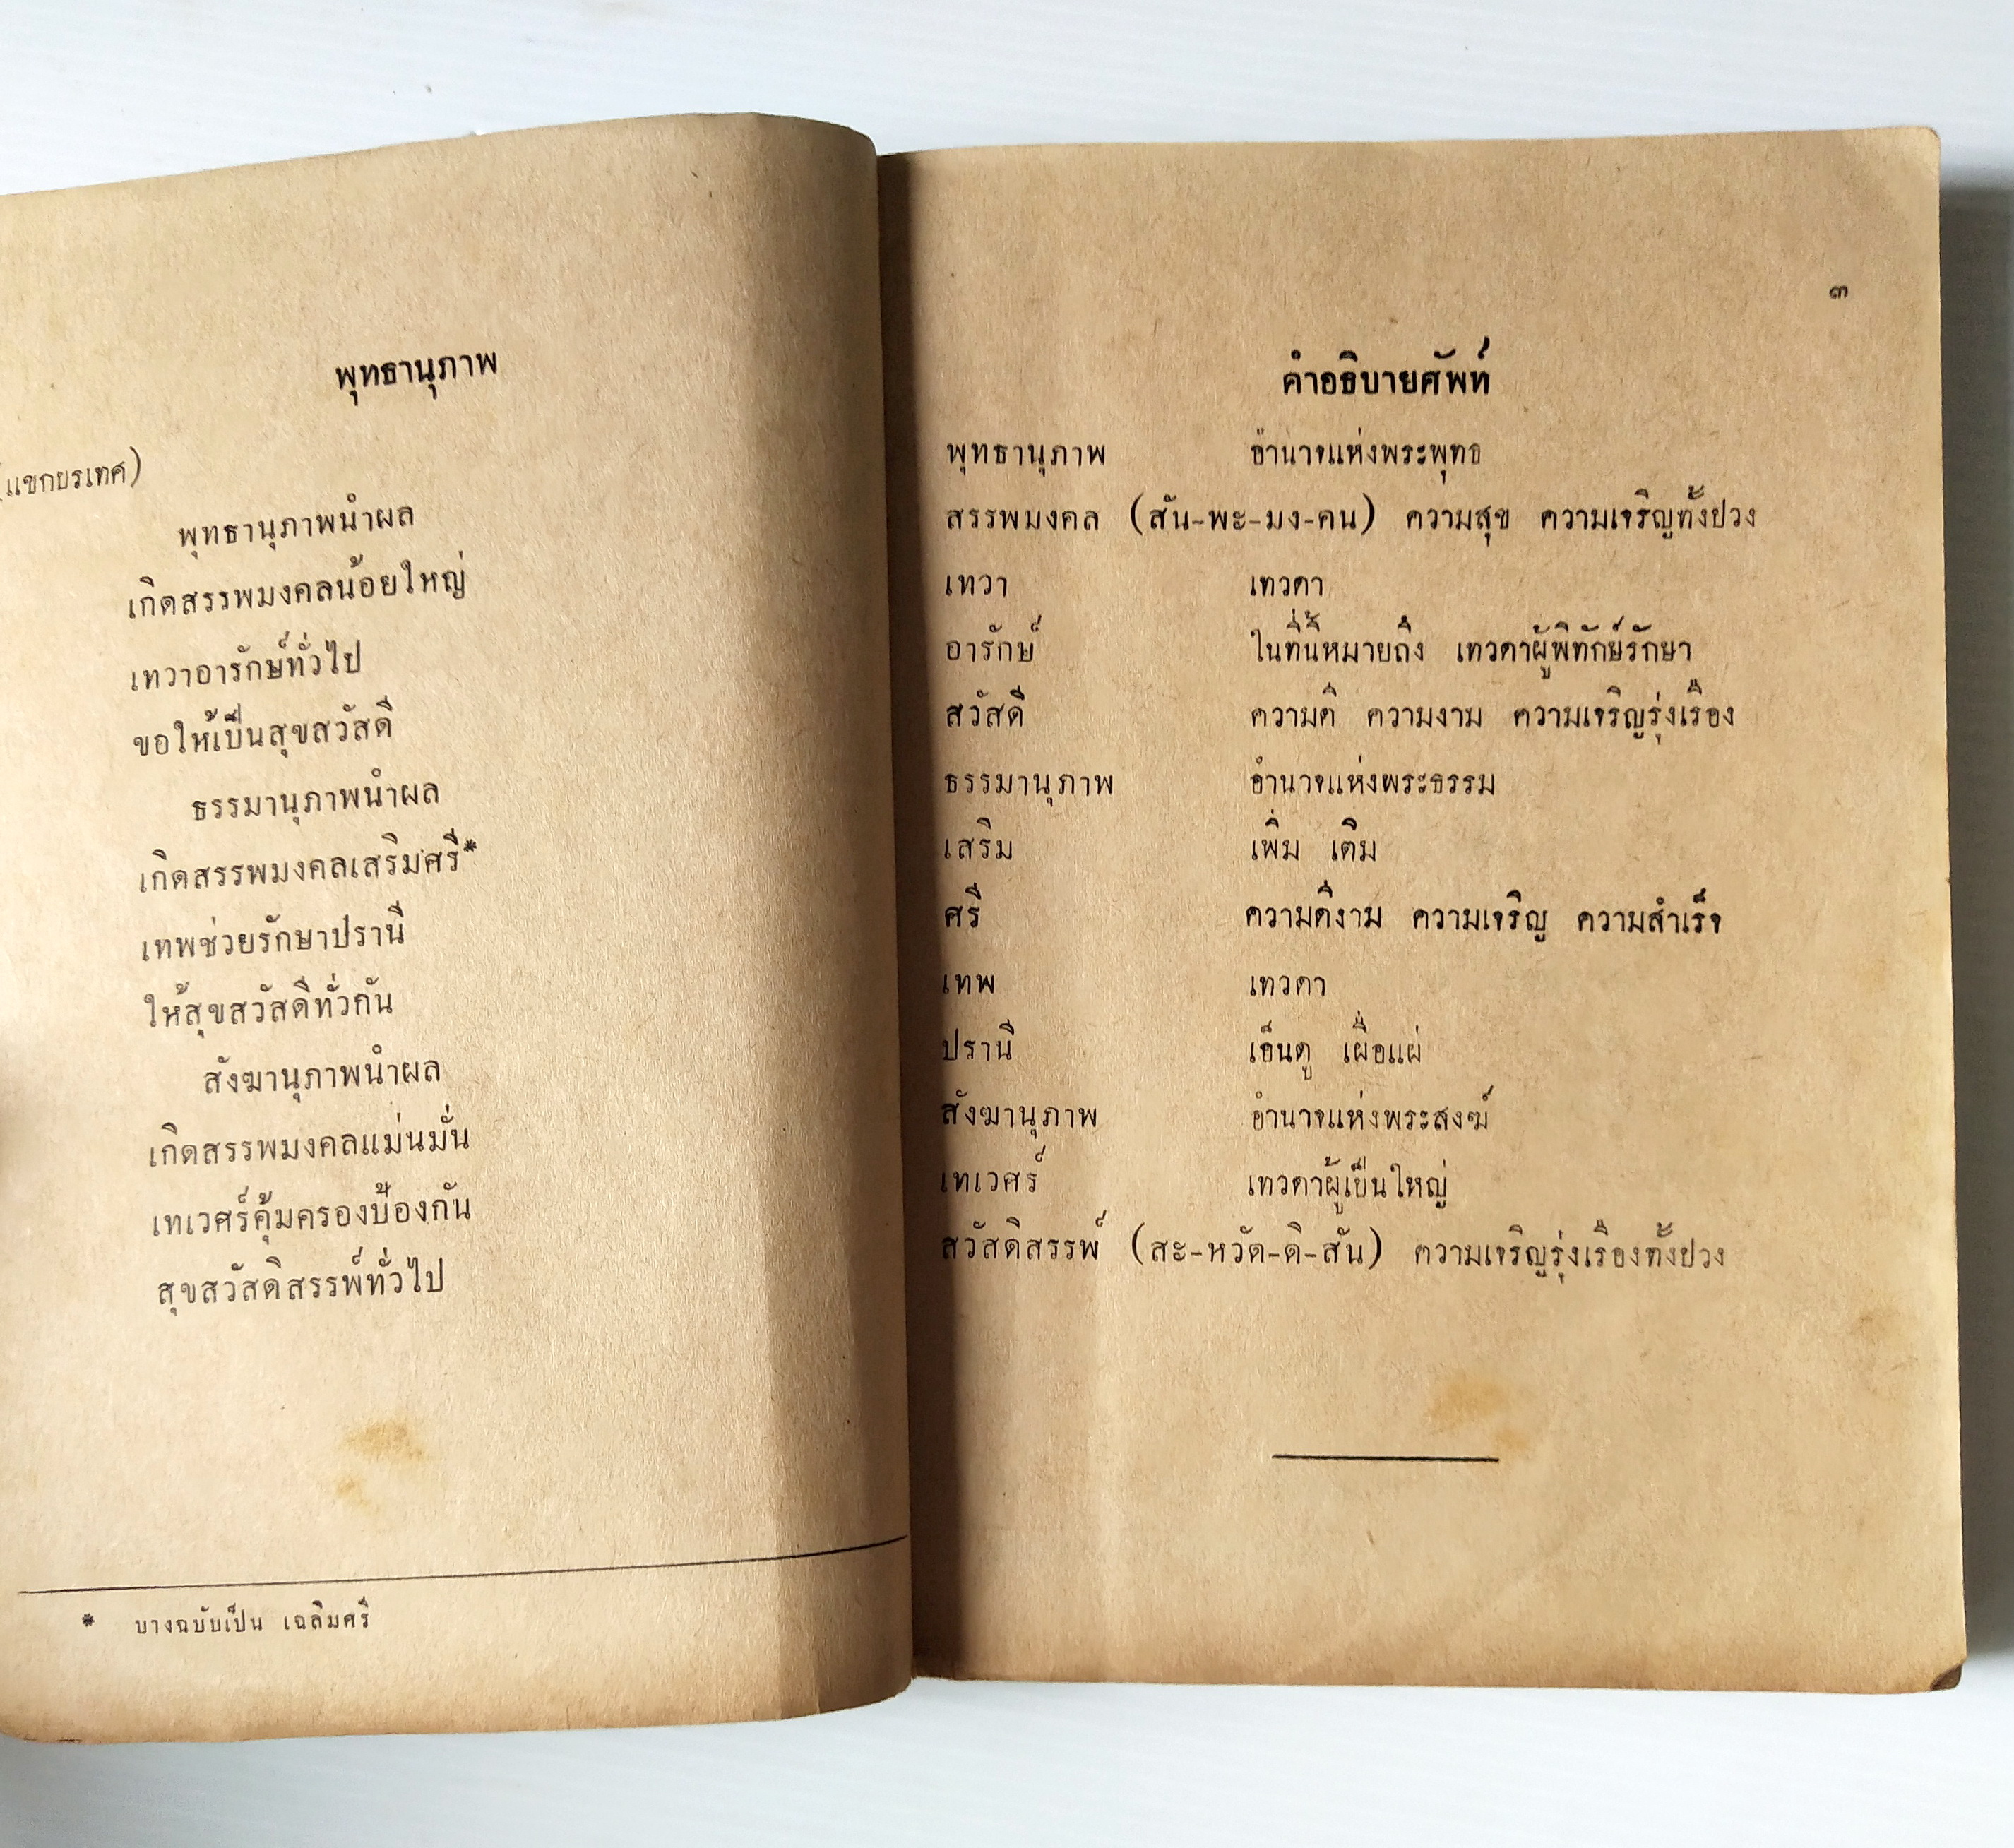 พุทธานุภาพ
(แขกบรเทศ)
พุทธานุภาพนำผล
เกิดสรรพมงคลน้อยใหญ่
เทวาอารักษ์ทั่วไป
ขอให้เป็นสุขสวัสดี
ธรรมานุภาพนำผล
เกิดสรรพมงคลเสริมศรี*
เทพช่วยรักษาปรานี
ให้สุขสวัสดีทั่วกัน
สังฆานุภาพนำผล
เกิดสรรพมงคลแม่นมั่น
เทเวศร์คุ้มครองป้องกัน
สุขสวัสดิสรรพ์ทั่วไป
* บางฉบับเป็น เฉลิมศรี
๓
คำอธิบายศัพท์
พุทธานุภาพ อำนาจแห่งพระพุทธ
สรรพมงคล (สัน-พะ-มง-คน) ความสุข ความเจริญทั้งปวง
เทวา เทวดา
อารักษ์ ในที่นี้หมายถึง เทวดาผู้พิทักษ์รักษา
สวัสดี ความดี ความงาม ความเจริญรุ่งเรือง
ธรรมานุภาพ อำนาจแห่งพระธรรม
เสริม เพิ่ม เติม
ศรี ความดีงาม ความเจริญ ความสำเร็จ
เทพ เทวดา
ปรานี เอ็นดู เผื่อแผ่
สังฆานุภาพ อำนาจแห่งพระสงฆ์
เทเวศร์ เทวดาผู้เป็นใหญ่
สวัสดิสรรพ์ (สะ-หวัด-ดิ-สัน) ความเจริญรุ่งเรืองทั้งปวง